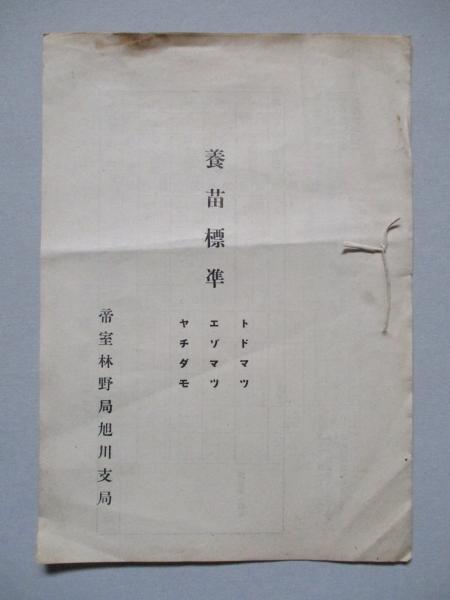 養苗標準
トドマツ
エゾマツ
ヤチダモ
帝室林野局旭川支局